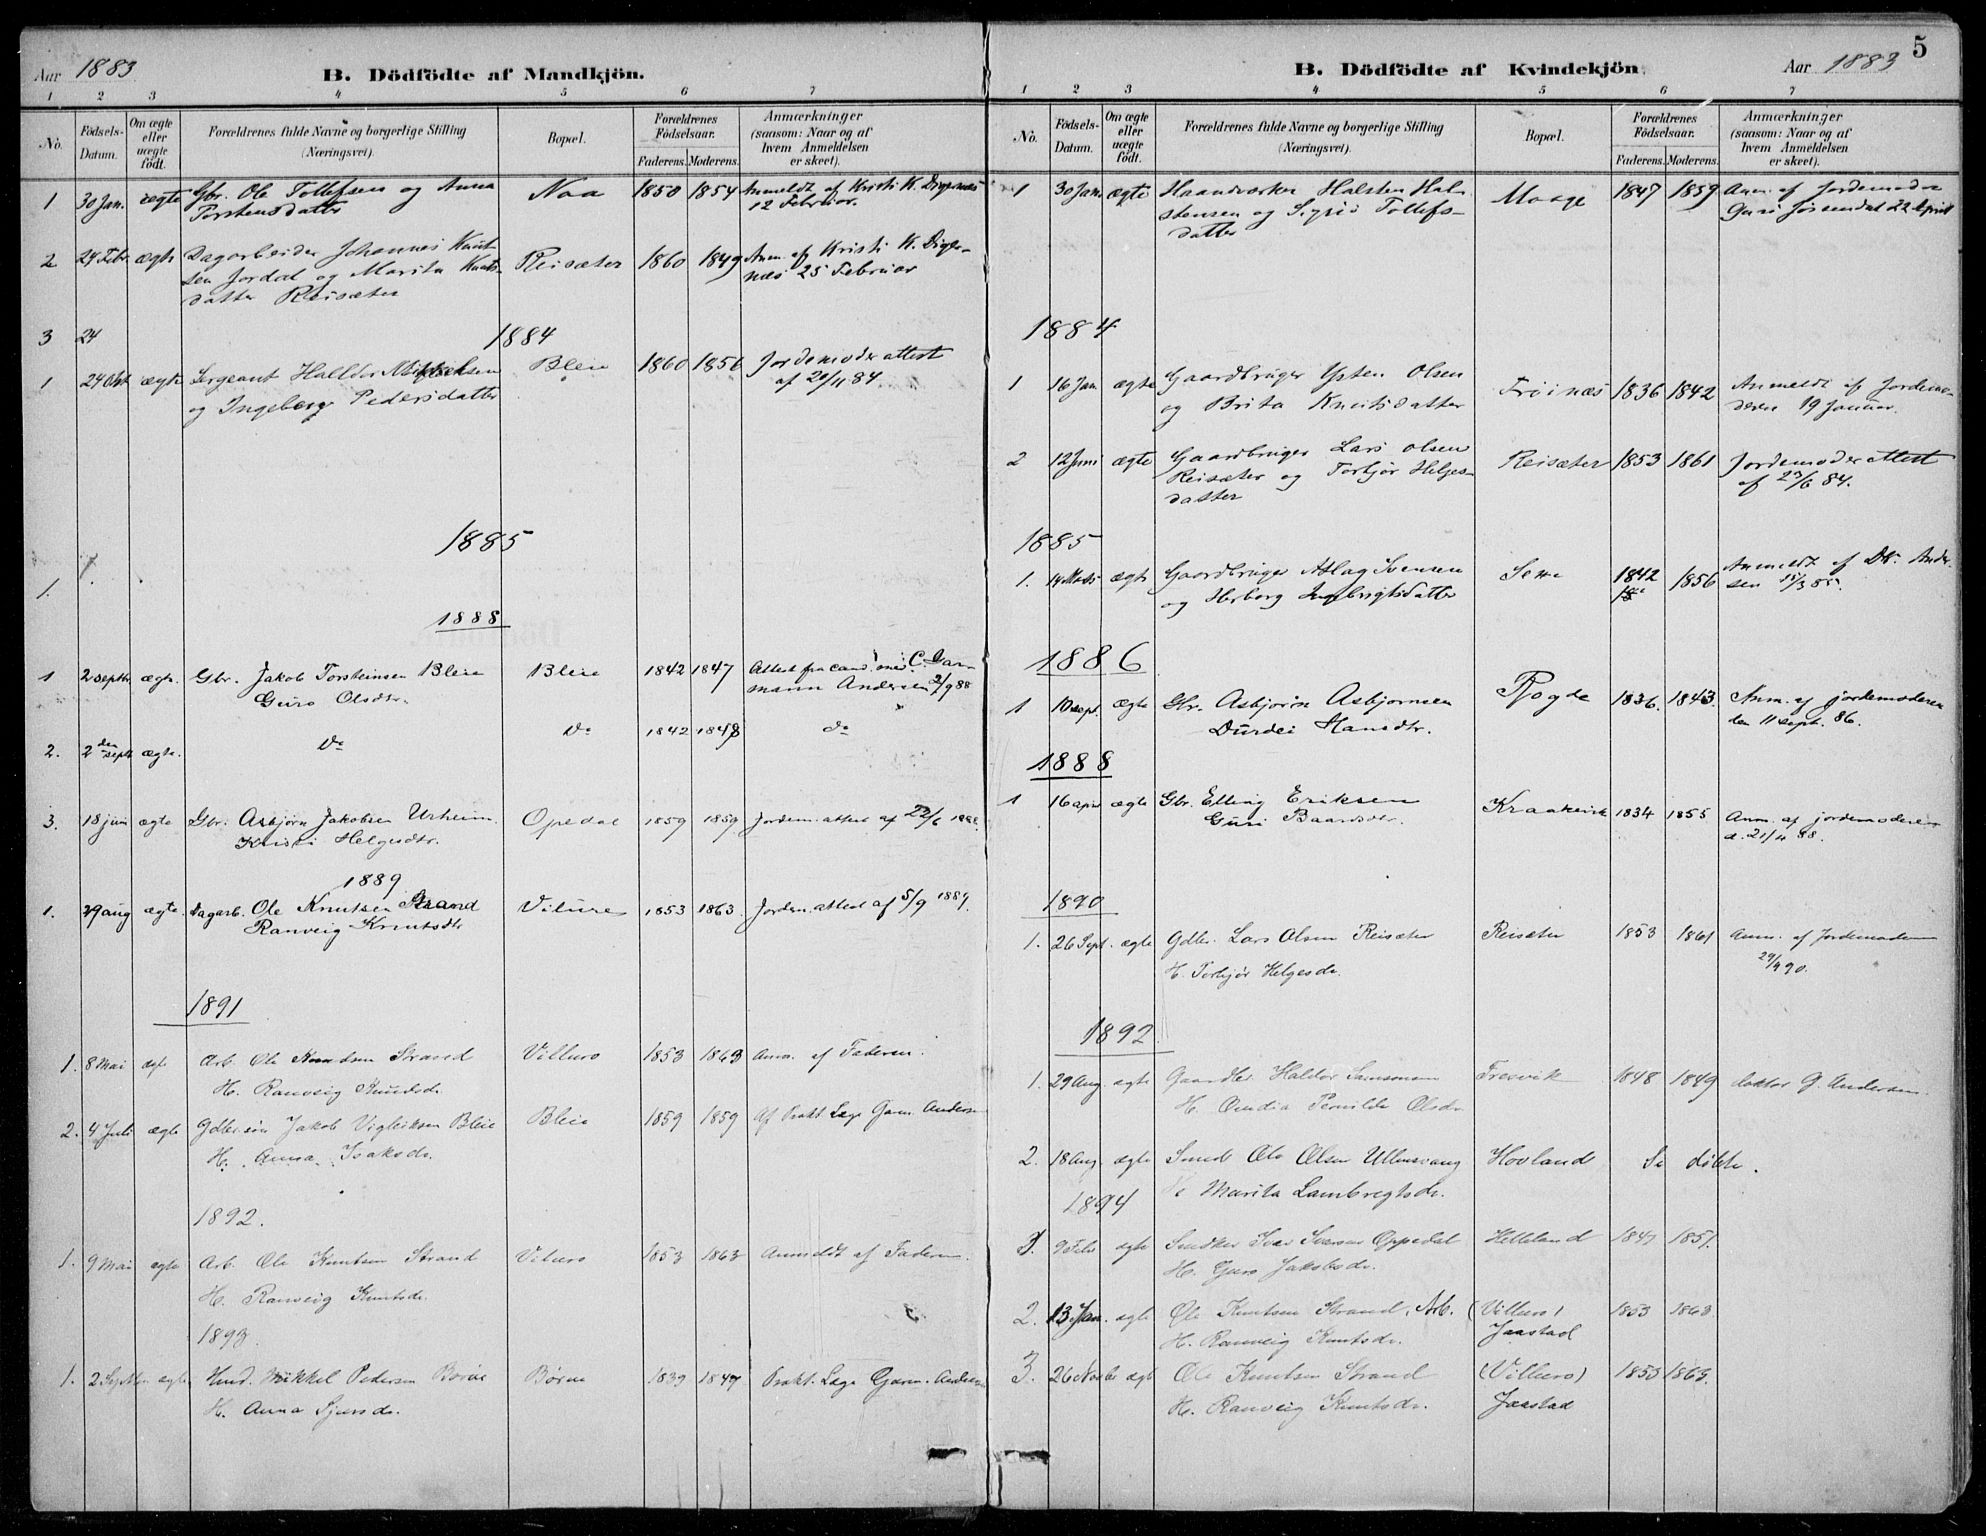 Aar 1883
B. Dödfödte af Mandkjön.
1 2 3 4 5 6 7
No. Födsels-Datum. Om ægte eller uægte födt. Forældrenes fulde Navne og borgerlige Stilling (Næringsvei). Bopæl. Forældrenes Födselsaar. Faderens. Moderens. Anmærkninger (saasom: Naar og af hvem Anmeldelsen er skeet).
1 30 Jan. ægte Gbr. Ole Tollefsen og Anna Naa 1850 1854 Anmeldt af Kristi K. Digernæs
Torstensdatter 12 Februar.
2 24 Febr ægte Dagarbeider Johannes Knut- Reisæter 1860 1849 Anm. af Kristi K. Diger-
sen Jordal og Marita Knuts- næs 25 Februar
datter Reisæter
3 24
1884
1 24 Okt ægte Sergeant Halldor Bleie 1860 1856 Jordemoderattest
og Ingeborg Pedersdatter af 20/11 84
1885
1.
1888
1 2 septbr. ægte. Gbr. Jakob Torsteinsen Bleie Bleie 1842 1847 Attest fra cand. med. C. Gar-
Guro Olsdtr. mann Andersen 2/9 88
2. 2 den septb ægte. Do Do 1842 1848 do
3. 18 juni ægte Gbr. Asbjørn Jakobsen Urheim Opedal 1859 1859 Jordem. attest af 22/6 1888.
Kristi Helgesdtr.
1889
1. 29 aug ægte. Dagarb. Ole Knutsen Strand Vilure 1853 1863. Jordem. attest af 5/9 1889.
Ranveig Knutsdtr
1891
1. 8 Mai ægte Arb. Ole Knudsen Strand Villuro 1853 1863 Anm. af Faderen.
H. Ranveig Knudsdr.
2. 4 Juli ægte Gdbr søn Jakob Vigleiksen Bleie Bleie 1859 1859 Af Prakt. Læge Garm. Andersen
H. Anna Isaksdr.
1892.
1. 9 Mai ægte Arb. Ole Knutsen Strand Viluro 1853 1863 Anmeldt af Faderen.
H. Ranveig Knutsdr.
1893.
1. 2 Septbr. ægte Hmd. Mikkel Pedersen Børve Børve 1839 1847 Prakt. Læge Garm. Andersen
H. Anna Sjursdr.
5
B. Dödfödte af Kvindekjön.
Aar 1883
1 2 3 4 5 6 7
No. Födsels-Datum. Om ægte eller uægte födt. Forældrenes fulde Navne og borgerlige Stilling (Næringsvei). Bopæl. Forældrenes Födselsaar. Faderens. Moderens. Anmærkninger (saasom: Naar og af hvem Anmeldelsen er skeet).
1 30 Jan. ægte Haandværker Halsten Hal- Maage 1847 1859 Anm. af Jordemoder
stensen og Sigrid Tollefs- Guri Jøssendal 22 April
datter
1884
1 16 Jan. ægte Gaardbruger Østen Olsen Frøinæs 1836 1842 Anmeldt af Jordemo-
og Brita Knutsdatter deren 19 Januar.
2 12 Juni ægte Gaardbruger Lars Olsen Reisæter 1853 1861 Jordemoderattest
Reisæter og Torbjør Helges- af 23/6 84.
datter
1885
1. 14 Marts ægte Gaardbruger Aslag Svensen Sexe 1842 1856 Anmeldt af Dr. Ander-
og Herborg Ingebrigtsdatter sen 15/3 85.
1886
1 10 sept. ægte Gbr. Asbjørn Asbjørnsen 1836. 1843. Anm. af jordemoderen
Durdei Hansdtr. den 11 sept. 86.
1888
1 16 april ægte Gbr. Elling Eriksen Kraakevik 1834 1855 Anm. af jordemoderen
Guri Baardsdtr. d. 21/4 88.
1890
1. 26 Sept. ægte Gdbr. Lars Olsen Reisæter Reisæter 1853 1861 Anm. af Jordemoderen
H. Torbjør Helgesdr. 29/9 90.
1892.
1. 29 Aug. ægte Gaardbr. Haldor Samsonsen Fresvik 1848 1849 doktor G. Andersen.
H. Pernilde Olsdr.
2. 18 Aug. ægte Smed Ole Olsen Ullensvang Hovland Se døbte.
H. Marita Lambregtsdr.
1894
1. 9 Febr ægte Ivar Oppedal Helleland 1851.
H. Guro Jakobsdr.
2. 13 Jan. ægte Ole Knutsen Strand, Arb. (Villuro) 1853 1863
H. Ranveig Knutsdr. Jaastad
3. 26 Novbr ægte Ole Knutsen Strand (Villuro) 1853 1863.
H. Ranveig Knutsdr. Jaastad